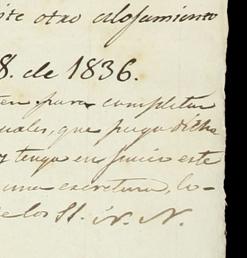 este otro alojamiento
8. de 1836.
ten para completar
uales, que pago dicha
y tengo en juicio este
una escretura, lo-
de los SS. N. N.